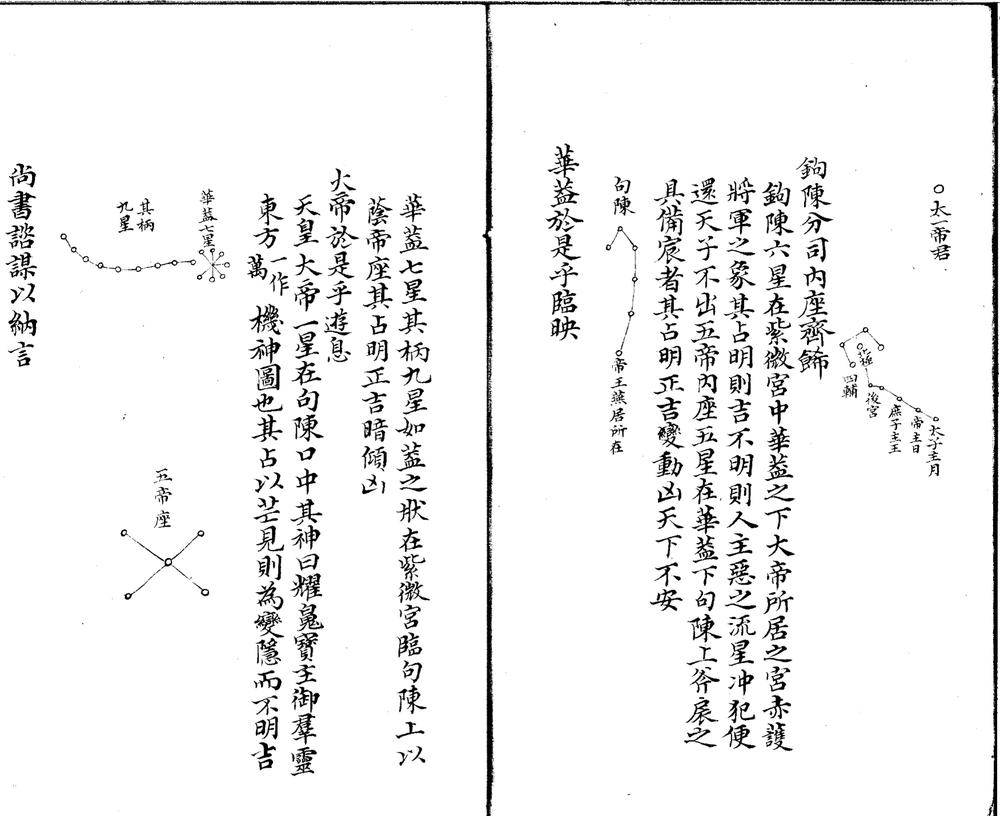 太一帝君
北極
四輔
後宮
庶子主王
帝主日
太子主月
鉤陳分司内座齊飾
鉤陳六星在紫微宮中華葢之下大帝所居之宮赤䕶
將軍之象其占明則吉不明則人主惡之流星冲犯便
還天子不出五帝内座五星在華葢下句陳上斧扆之
具備宸者其占明正吉變動凶天下不安
句陳
帝王燕居所在
華葢於是乎臨映
華葢七星其柄九星如葢之狀在紫微宮臨句陳上以
蔭帝座其占明正吉暗傾凶
大帝於是乎遊息
天皇大帝一星在句陳口中其神曰耀魄寶主御羣靈
東方一作萬機神圖也其占以芒見則為變隱而不明吉
華葢七星
其柄
九星
五帝座
尚書諮謀以納言